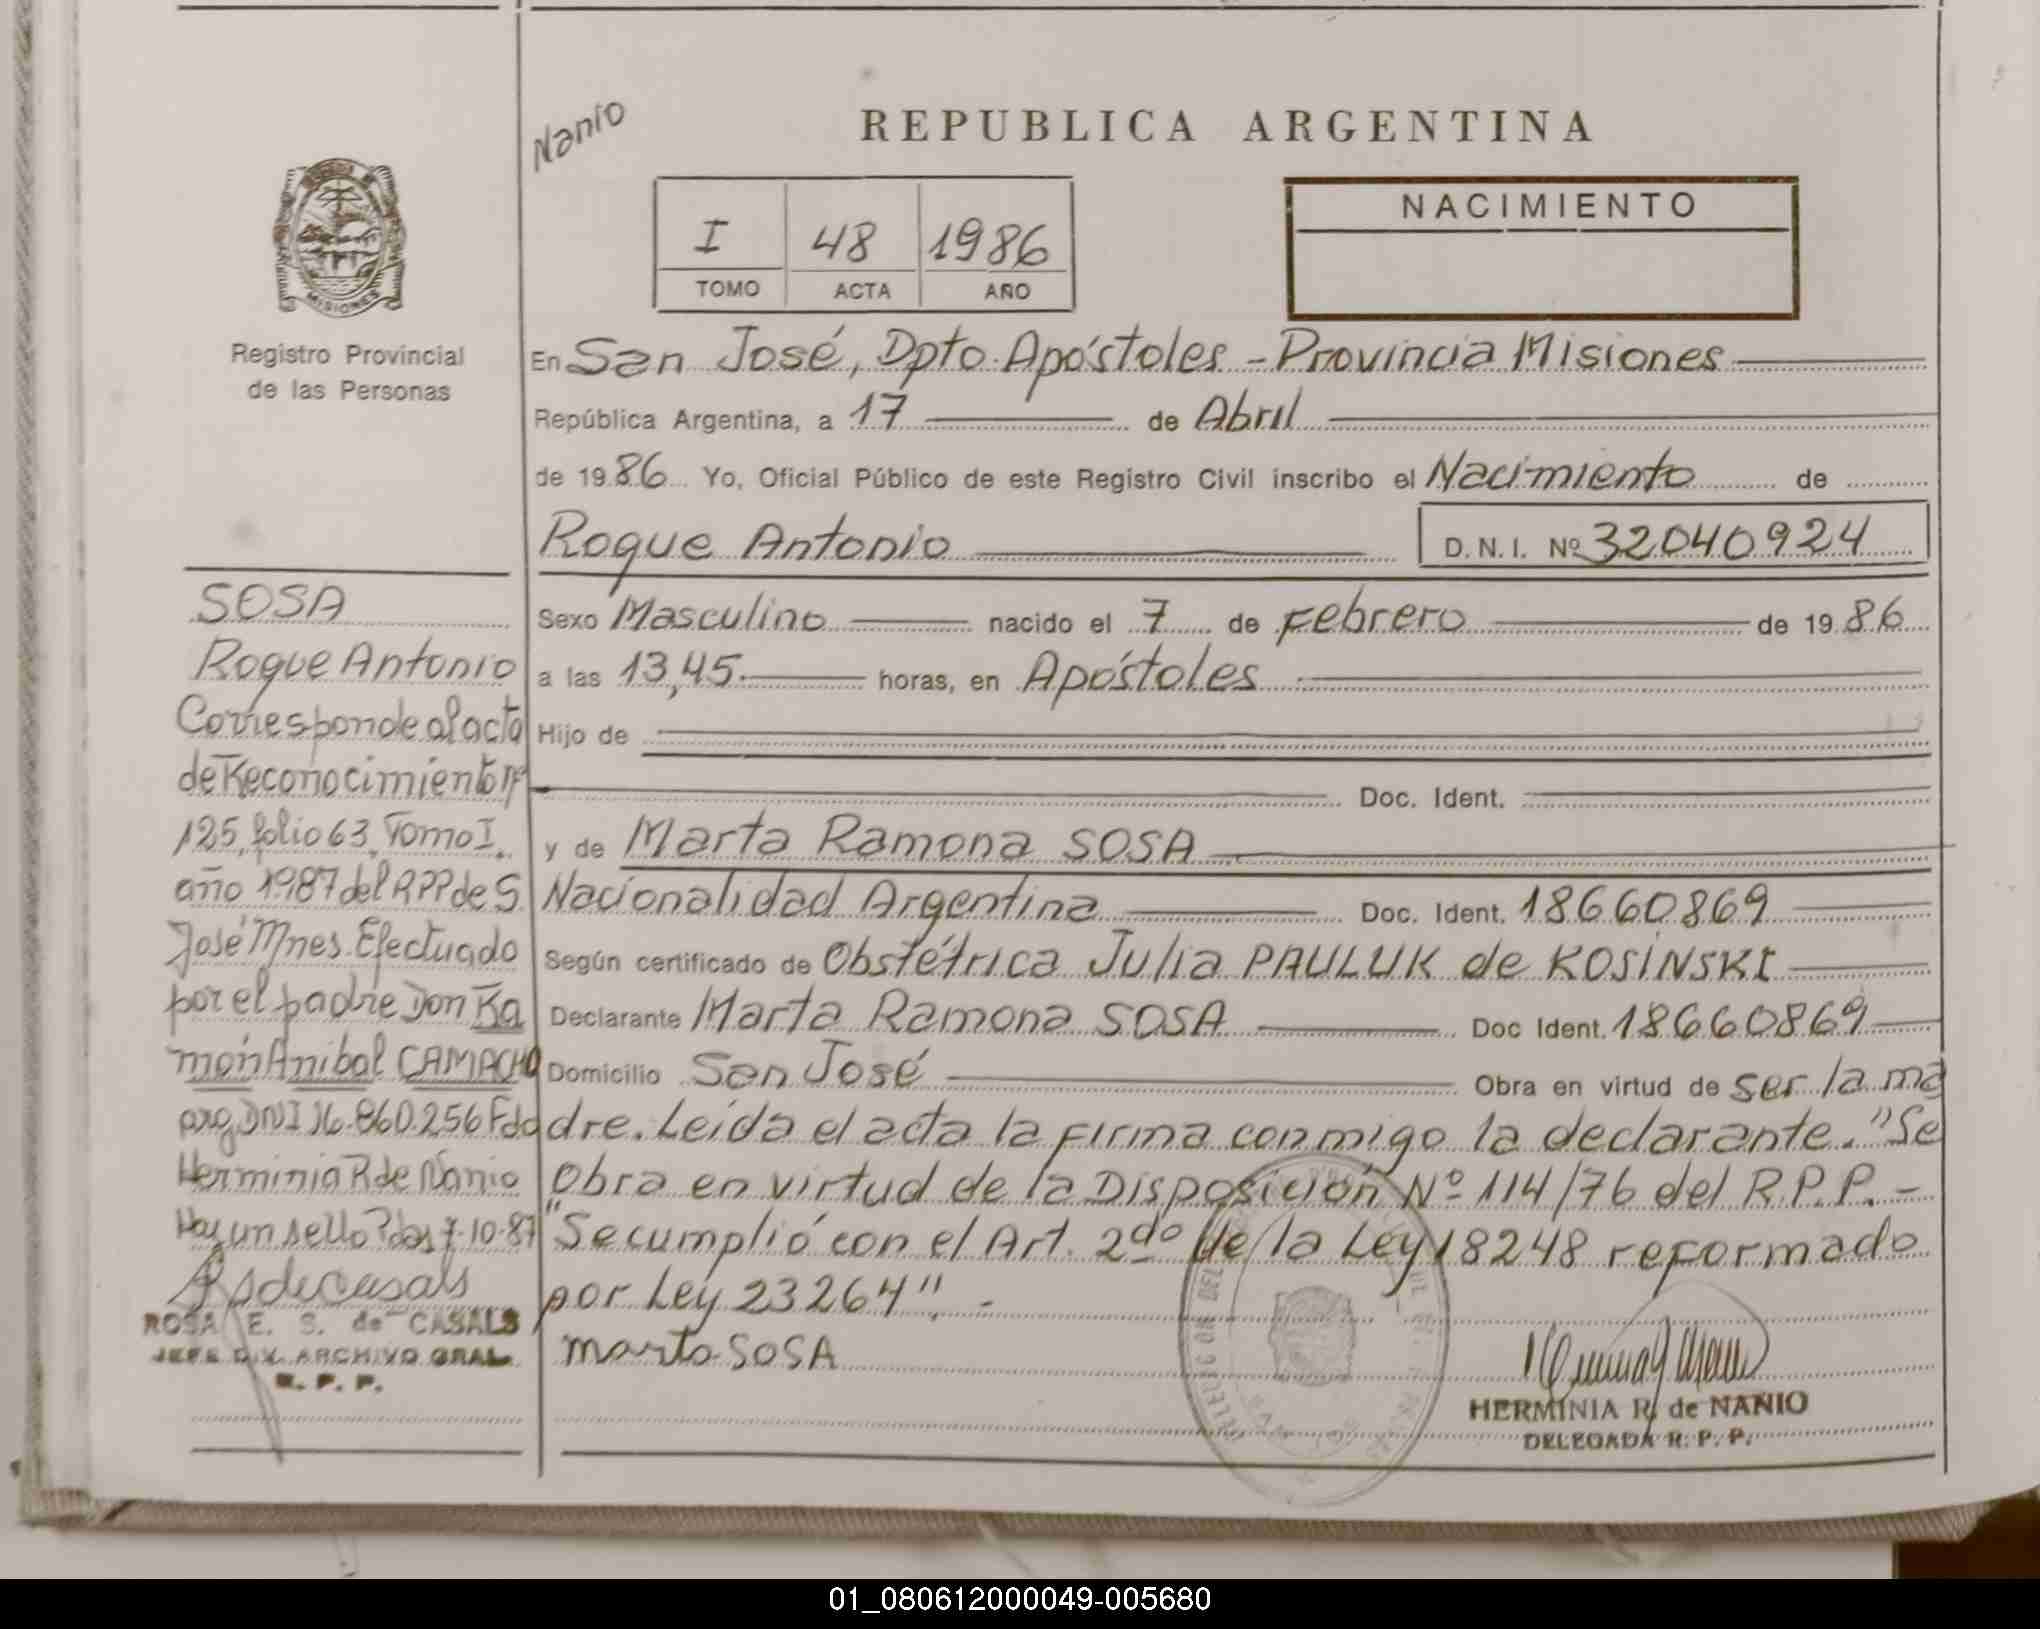 Nanio
REPUBLICA ARGENTINA
NACIMIENTO
I 48 1986
TOMO ACTA AÑO
MISIONES
Registro Provincial
de las Personas
En San José, Dpto. Apóstoles - Provincia Misiones
República Argentina, a 17 de Abril
de 1986 Yo, Oficial Público de este Registro Civil inscribo el Nacimiento de
Roque Antonio D.N.I. Nº 32040924
Sexo Masculino nacido el 7 de Febrero de 1986
a las 13,45. horas, en Apóstoles
Hijo de
Doc. Ident.
y de Marta Ramona SOSA
Nacionalidad Argentina Doc. Ident. 18660869
Según certificado de Obstétrica Julia PAULUK de KOSINSKI
Declarante Marta Ramona SOSA Doc Ident. 18660869
Domicilio San José Obra en virtud de ser la ma
dre. Leída el acta la firma conmigo la declarante. "Se
Obra en virtud de la Disposición Nº 114/76 del R.P.P. -
"Se cumplió con el Art. 2do de la Ley 18248 reformado
por Ley 23264". -
Marta SOSA
HERMINIA R. de NANIO
DELEGADA R. P. P.
SOSA
Roque Antonio
Corresponde al acta
de Reconocimiento nº
125, folio 63, Tomo I,
año 1987 del RPP de S.
José Mnes. Efectuado
por el padre Don Ra
món Anibal CAMACHO
arg DNI 16.860.256 Fdo
Herminia R de Nanio
Hay un sello Pdas 7-10-87
ROSA E. S. de CASALS
JEFE DIV. ARCHIVO GRAL.
R. P. P.
01_080612000049-005680